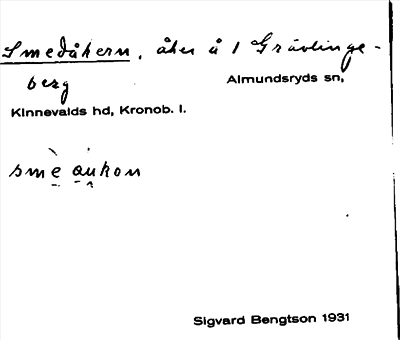 Smedåkern, åker å 1 Grävlinge-
berg Almundsryds sn,
Kinnevalds hd, Kronob. l.
smè au̯kon
Sigvard Bengtson 1931